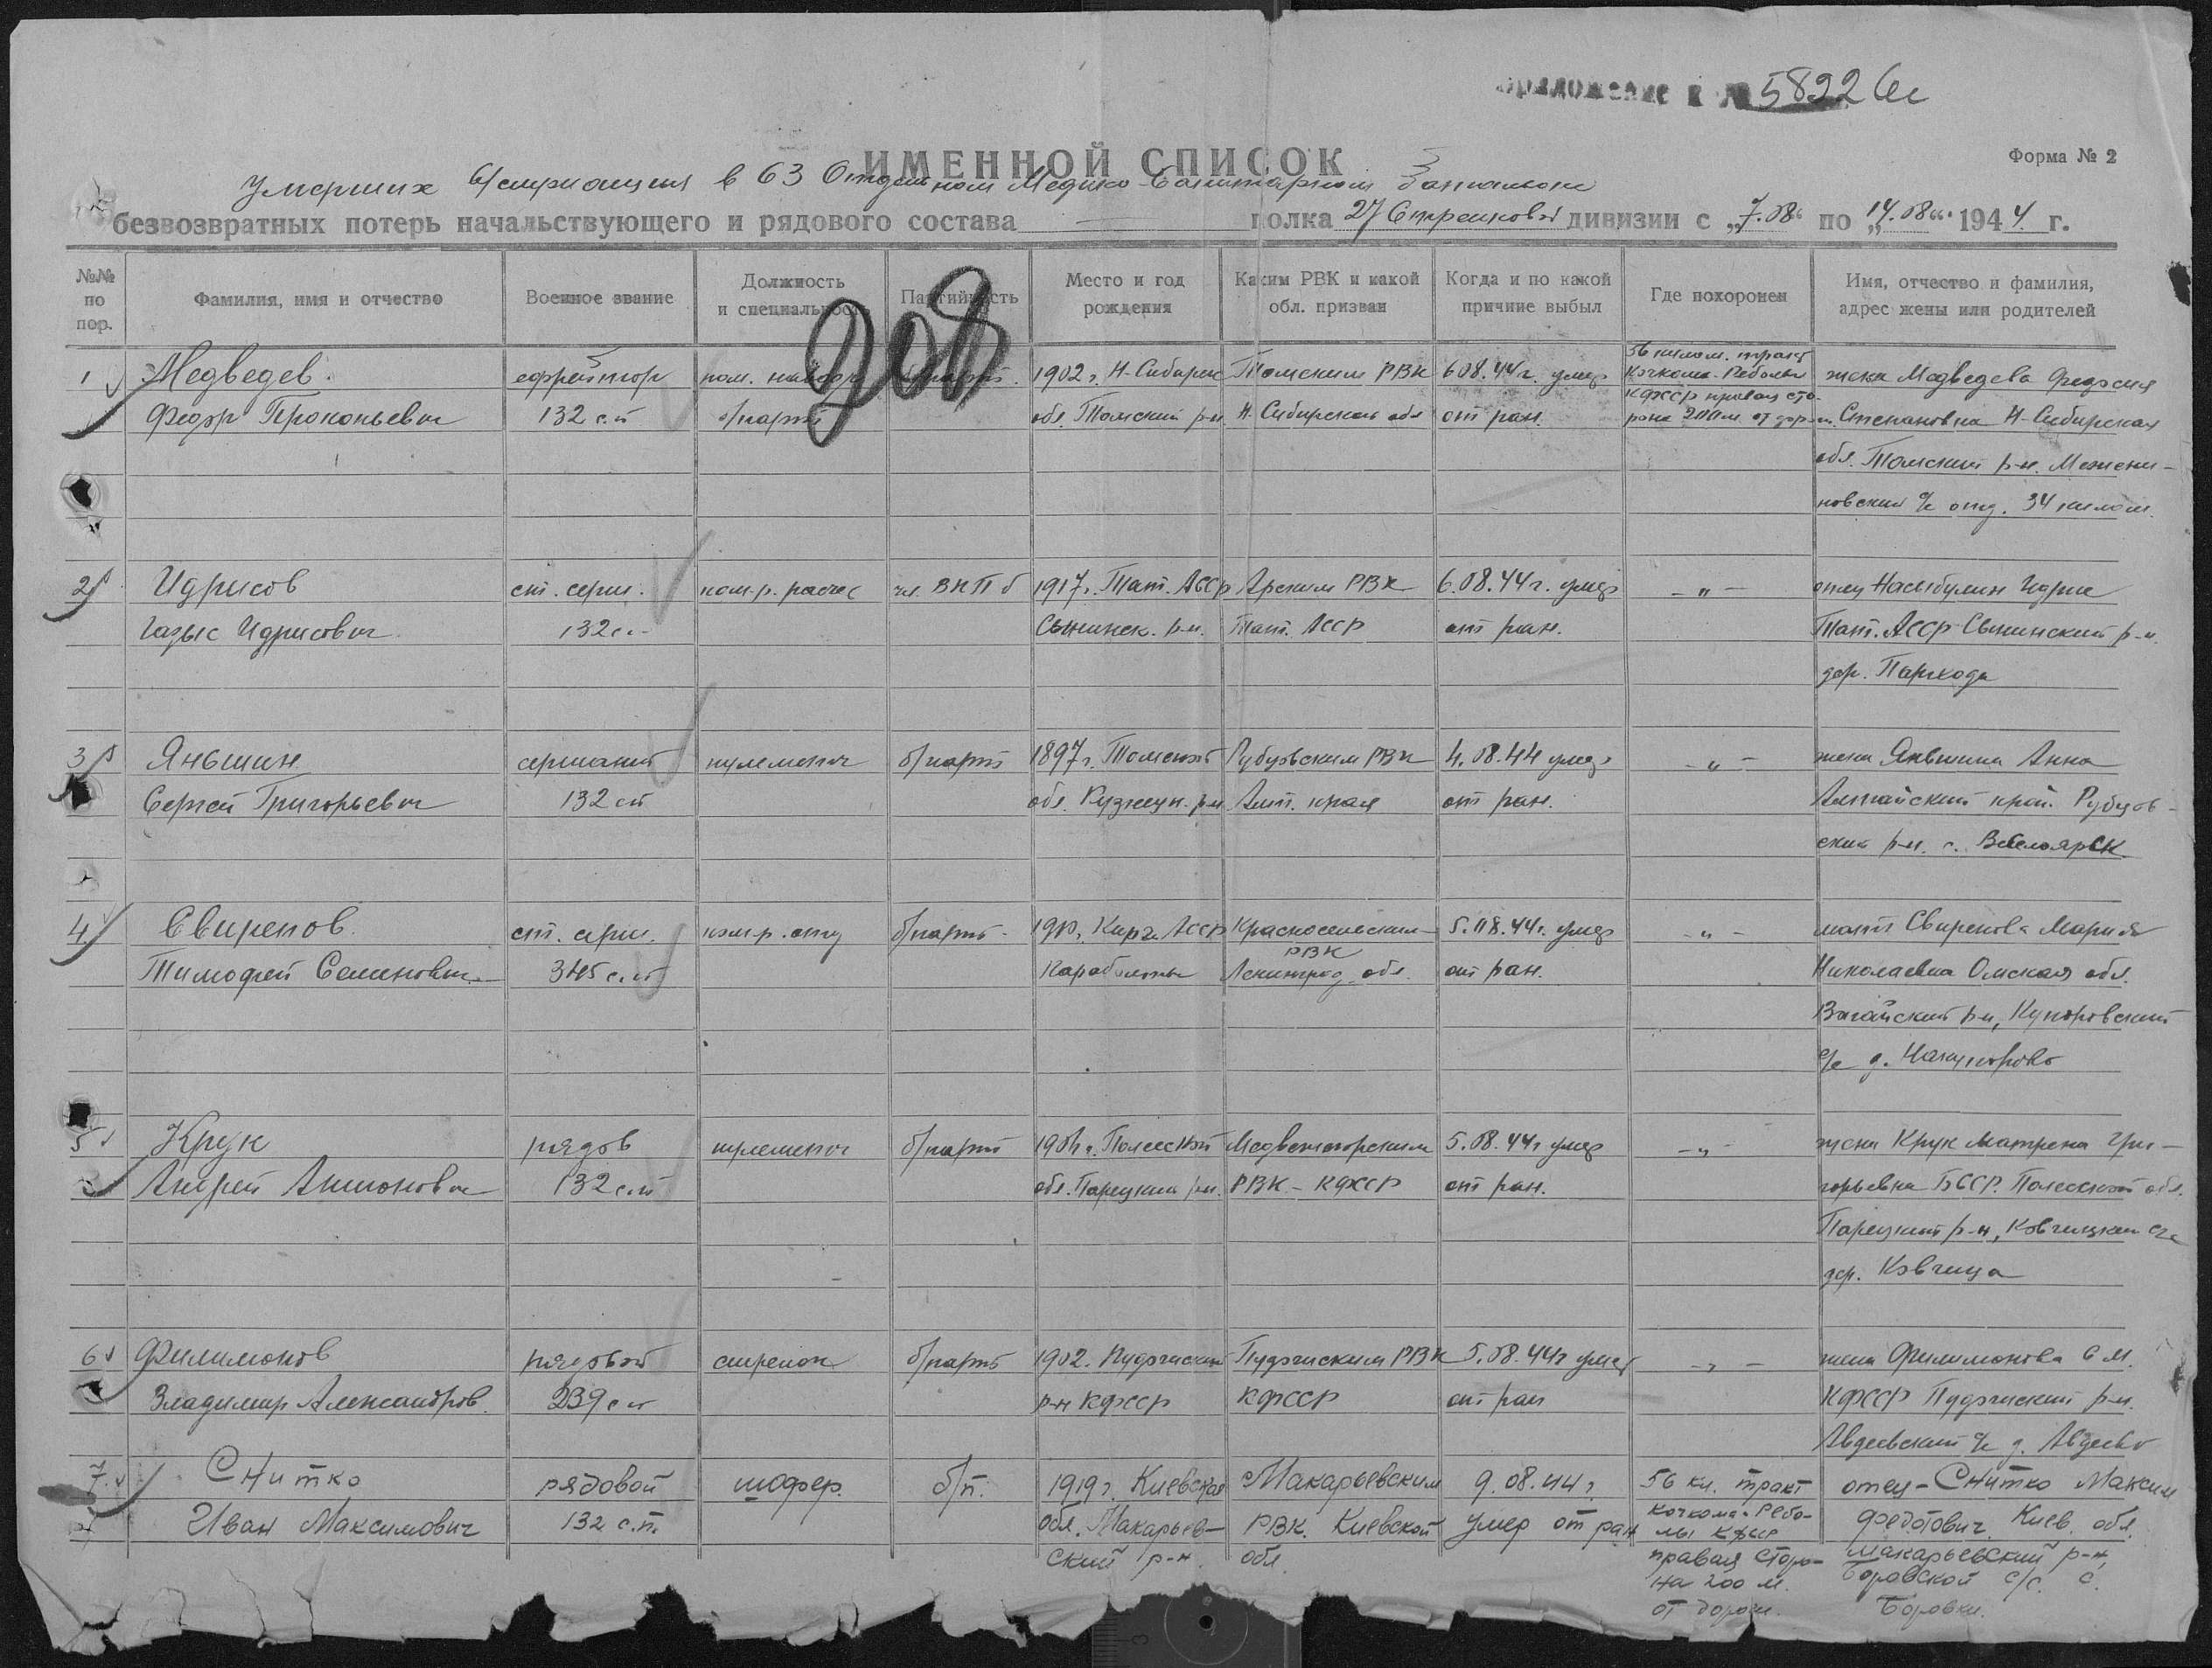 Приложение к № 5892 6с
ИМЕННОЙ СПИСОК
Форма № 2
Умерших в 63 Отдельном Медико-Санитарном Батальоне
безвозвратных потерь начальствующего и рядового состава — полка 27 Стрелковой дивизии с „7.08“ по „14.08“ 1944 г.
№№ по пор.
Фамилия, имя и отчество
Военное звание
Должность и специальность
Партийность
Место и год рождения
Каким РВК и какой обл. призван
Когда и по какой причине выбыл
Где похоронен
Имя, отчество и фамилия, адрес жены или родителей
208
1 Медведев ефрейтор пом. б/парт. 1902 г. Н-Сибирск Томским РВК 6.08.44 г. умер 56 килом. тракт Кочкома-Реболы жена Медведева
Федор Прокопьевич 132 с.п б/парт обл. Томский р-н. Н-Сибирской обл от ран. КФССР правая сторона 200 м от дор. Степановна Н-Сибирская
обл. Томский р-н. Межени-
новский с/с отд. 34 килом.
2 Идрисов ст. серж. ком-р. расчет чл. ВКП б 1917 г. Тат. АССР Арским РВК 6.08.44 г. умер — " — отец Насыбулин Идрис
Идрисович 132 с.п Тат. АССР от ран. Тат. АССР р-н
дер.
3 Яньшин сержант пулеметч 1897 г. Томской Рубцовским РВК 4.08.44 умер — " — жена Яньшина Анна
Сергей Григорьевич 132 сп б/парт обл. Кузнецк. р-н Алт. края от ран. Алтайский край. Рубцов-
ский р-н. с. Веселоярск
4 Свирепов ст. серж. ком-р. отд б/парт. Кирг. АССР Красносельским РВК 5.08.44 г. умер — " — мать Свирепова Мария
Тимофей Семенович 345 с.п Ленинград. обл. от ран. Николаевна Омская обл.
Вагайский р-н, Купоровский
с/с д.
5 Крук рядов пулеметч б/парт Полесской Медвежегорским 5.08.44 г умер — " — жена Крук Матрена Гри-
Андрей Антонович 132 с.п обл. Парецкий р-н. РВК - КФССР от ран. горьевна БССР. Полесской обл.
Парецкий р-н, Ковчицкий с/с
дер. Ковчица
6 Филимонов рядовой стрелок б/парт 1902. Пудожский Пудожским РВК 5.08.44 г умер — " — жена Филимонова С М.
Владимир Александров. 239 сп р-н КФССР КФССР от ран КФССР Пудожский р-н.
Авдеевский с/с д. Авдеево
7. Снитко рядовой шофер. б/п. 1919 г. Киевская Макарьевским 9.08.44 г. 56 км. тракт отец - Снитко Максим
Иван Максимович 132 с.п. обл. Макарьев- РВК. Киевской умер от ран Кочкома-Ребо-лы КФССР Федотович. Киев. обл.
ский р-н. обл. правая сторо- Макарьевский р-н,
на 200 м. Боровской с/с. с.
от дороги. Боровки.